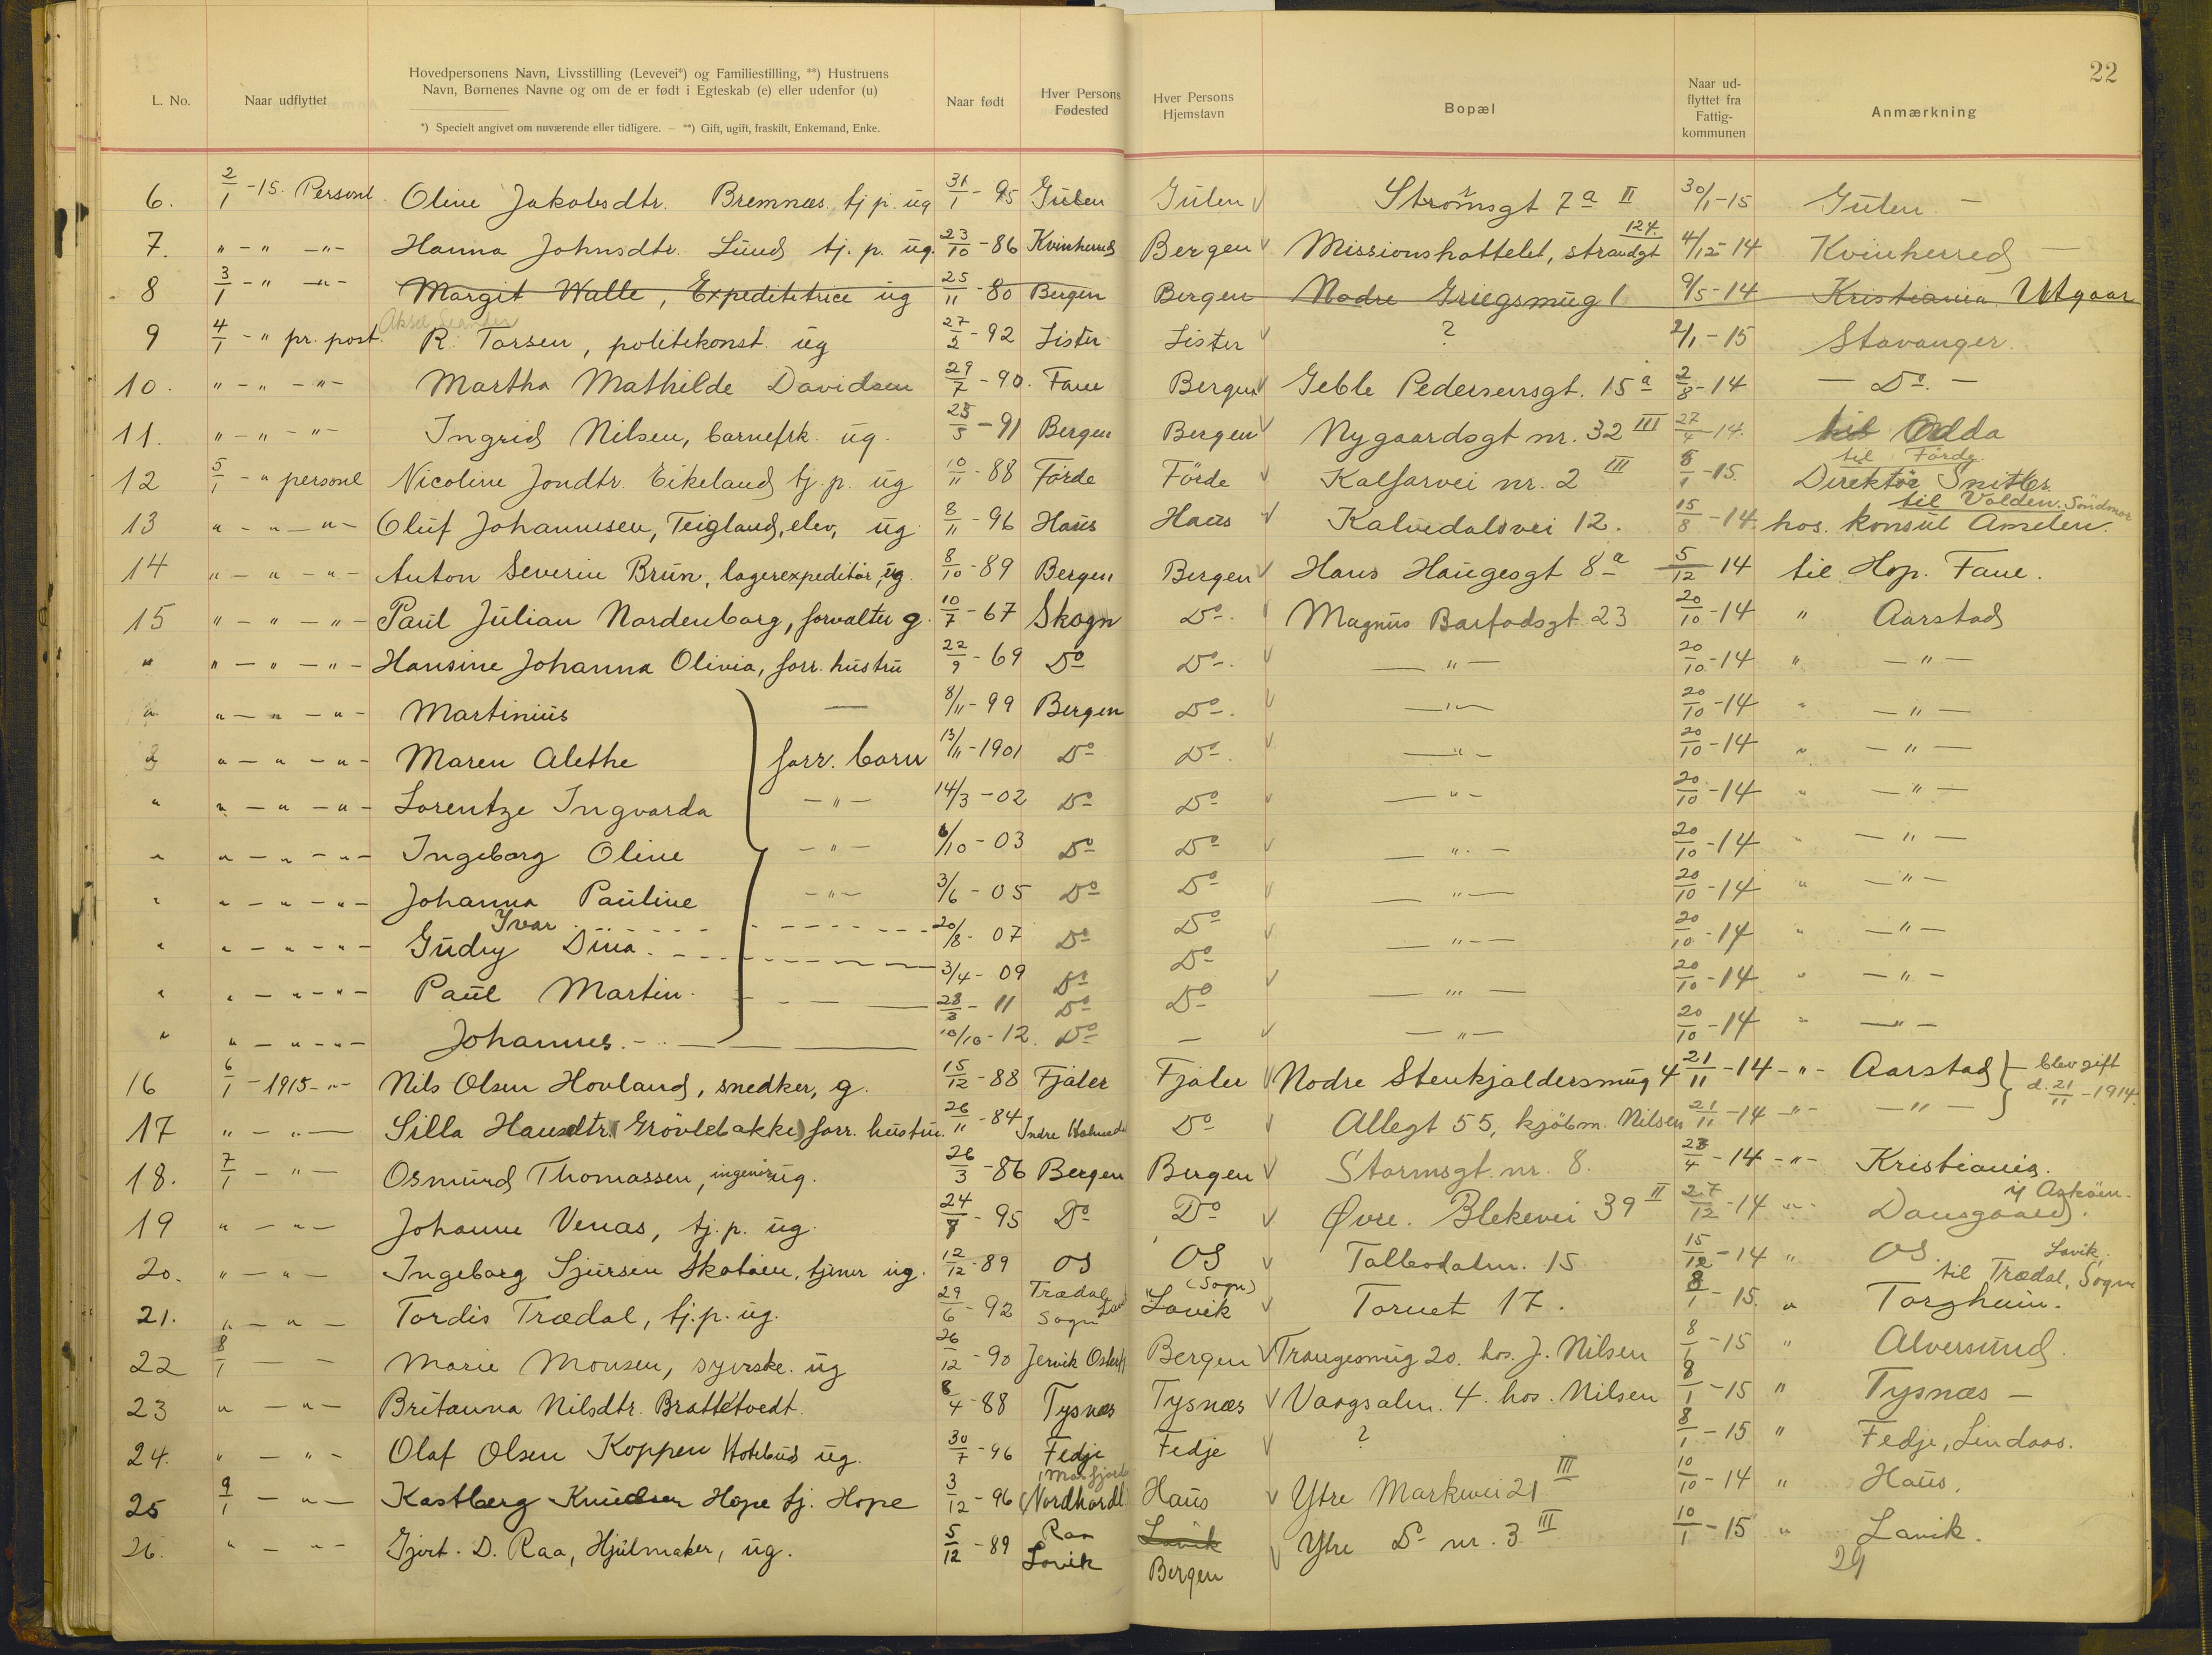 22
L. No.
Naar udflyttet
Hovedpersonens Navn, Livsstilling (Levevei*) og Familiestilling, **) Hustruens
Navn, Børnenes Navne og om de er født i Egteskab (e) eller udenfor (u)
*) Specielt angivet om nuværende eller tidligere. — **) Gift, ugift, fraskilt, Enkemand, Enke.
Naar født
Hver Persons
Fødested
Hver Persons
Hjemstavn
Bopæl
Naar ud-
flyttet fra
Fattig-
kommunen
Anmærkning
6. 2/1 -15. Personl. Oline Jakobsdtr. Bremnæs tj.p. ug 31/1 - 95 Gulen Gulen √ Strømsgt 7a II 30/1-15 Gulen. —
124.
7. " - " - " - Hanna Johnsdtr. Lund tj. p. ug. 23/10 - 86 Kvinherred Bergen √ Missionshottelet, strandgt 4/12-14 Kvinherred —
8 3/1 - " - " - Margit Walle, Expeditrice ug 25/11 - 80 Bergen Bergen Nodre Griegsmug 1 9/5-14 Kristiania Utgaar
Aksel
9 4/1 - " pr. post. R. Tarsen, politikonst. ug 27/2 - 92 Lister Lister √ ? 2/1-15 Stavanger.
10. " - " - " - Martha Mathilde Davidsen 29/7 - 90. Fane Bergen √ Geble Pedersensgt. 15a 2/8-14 — Do. —
11. " - " - " - Ingrid Nilsen, barnefrk. ug. 25/5 - 91 Bergen Bergen √ Nygaardsgt nr. 32 III 27/4-14. til Odda
til Förde.
12 5/1 - " personl Nicoline Jondtr. Eikeland tj. p. ug 10/11 - 88 Förde Förde √ Kalfarvei nr. 2 III 8/1-15. Direktör Snitler
til Volden. Söndmør
13 " - " - " - Oluf Johannesen, Teigland, elev, ug. 8/11 - 96 Haus Haus √ Kalvedalsvei 12. 15/8-14. hos. konsul Amelen.
14 " - " - " - Anton Severin Brun, lagerexpeditör, ug. 8/10 - 89 Bergen Bergen √ Hans Haugesgt 8a 5/12 14 til Hop. Fane.
15 " - " - " - Paul Julian Nordenborg, forvalter g. 10/7 - 67 Skogn Do. √ Magnus Barfodsgt 23 20/10-14 " Aarstad
" " - " - " - Hansine Johanna Olivia, forr. hustru 22/9 - 69 Do Do. √ — " — 20/10-14 " — " —
" " - " - " - Martinius — 8/11-99 Bergen Do. √ — " — 20/10-14 " — " —
" " - " - " - Maren Alethe forr. barn 13/11-1901 Do Do. √ — " — 20/10-14 " — " —
" " - " - " - Lorentze Ingvarda — " — 14/3-02 Do Do √ — " — 20/10-14 " — " —
" " - " - " - Ingeborg Oline — " — 6/10-03 Do Do √ — " — 20/10-14 " — " —
" " - " - " - Johanna Pauline — " — 3/6-05 Do Do √ — " — 20/10-14 " — " —
Ivar 20/8-07 Do Do
" " - " - " - Gudny Dina 3/4-09 Do Do √ — " — 20/10-14 " — " —
" " - " - " - Paul Martin. 28/3-11 Do Do √ — " — 20/10-14 " — " —
" " - " - " - Johannes. 10/10-12. Do — √ — " — 20/10-14 " — " —
16 6/1 - 1915 - " - Nils Olsen Hovland, snedker, g. 15/12 - 88 Fjaler Fjaler √ Nodre Stenkjældersmug 4 21/11-14 - " - Aarstad } — blev gift
d. 21/11-1914.
17 " - " — Silla Hansdtr. (Grövlebakke) forr. hustru. 26/11 - 84 Indre Do √ Allegt 55, kjöbm. Nilsen 21/11-14 - " - — " —
18. 7/1 - " - Osmund Thomassen, ingeniör ug. 26/3 - 86 Bergen Bergen √ Stormsgt. nr. 8. 28/4-14 - " - Kristiania.
Askøen.
19 " - " - Johanne Venas, tj. p. ug. 24/7 - 95 Do Do √ Øvre. Blekevei 39 II 27/12-14 - " - Dansgaard.
20. " - " - Ingeborg Sjursen Skotöien, tjener ug. 12/12-89 OS OS √ Tollbodalm. 15 15/12-14 " OS.
Lavik.
til Trædal, Sogn
Trædal
(Sogn)
21. " - " - Tordis Trædal, tj. p. ug. 29/6 - 92 Sogn Lavik √ Tornet 17. 8/1-15. " Torghein.
22 8/1 — — Marie Monsen, syerske. ug 26/12-90 Jervik Osterf Bergen √ Trangesmug 20. hos. J. Nilsen 8/1-15 " Alversund.
23 " - " - Britanna Nilsdtr. Brattetvedt. 8/4-88 Tysnæs Tysnæs √ Vaagsalm. 4. hos. Nilsen 8/1-15 " Tysnæs —
24. " - " - Olaf Olsen Koppen Hotelbud ug. 30/7-96 Fedje Fedje √ ? 8/1-15 " Fedje, Lindaas.
Masfjord
25 9/1 - " - Kastberg Knudsen Hope tj. Hope 3/12-96 (Nordhordl. Haus √ Ytre Markevei 21 III 10/10-14 " Haus.
Raa
26. " - " - Gjert. D. Raa, Hjulmaker, ug. 5/12-89 Lavik Lavik √ Ytre Do nr. 3 III 10/1-15 " Lavik.
Bergen
29